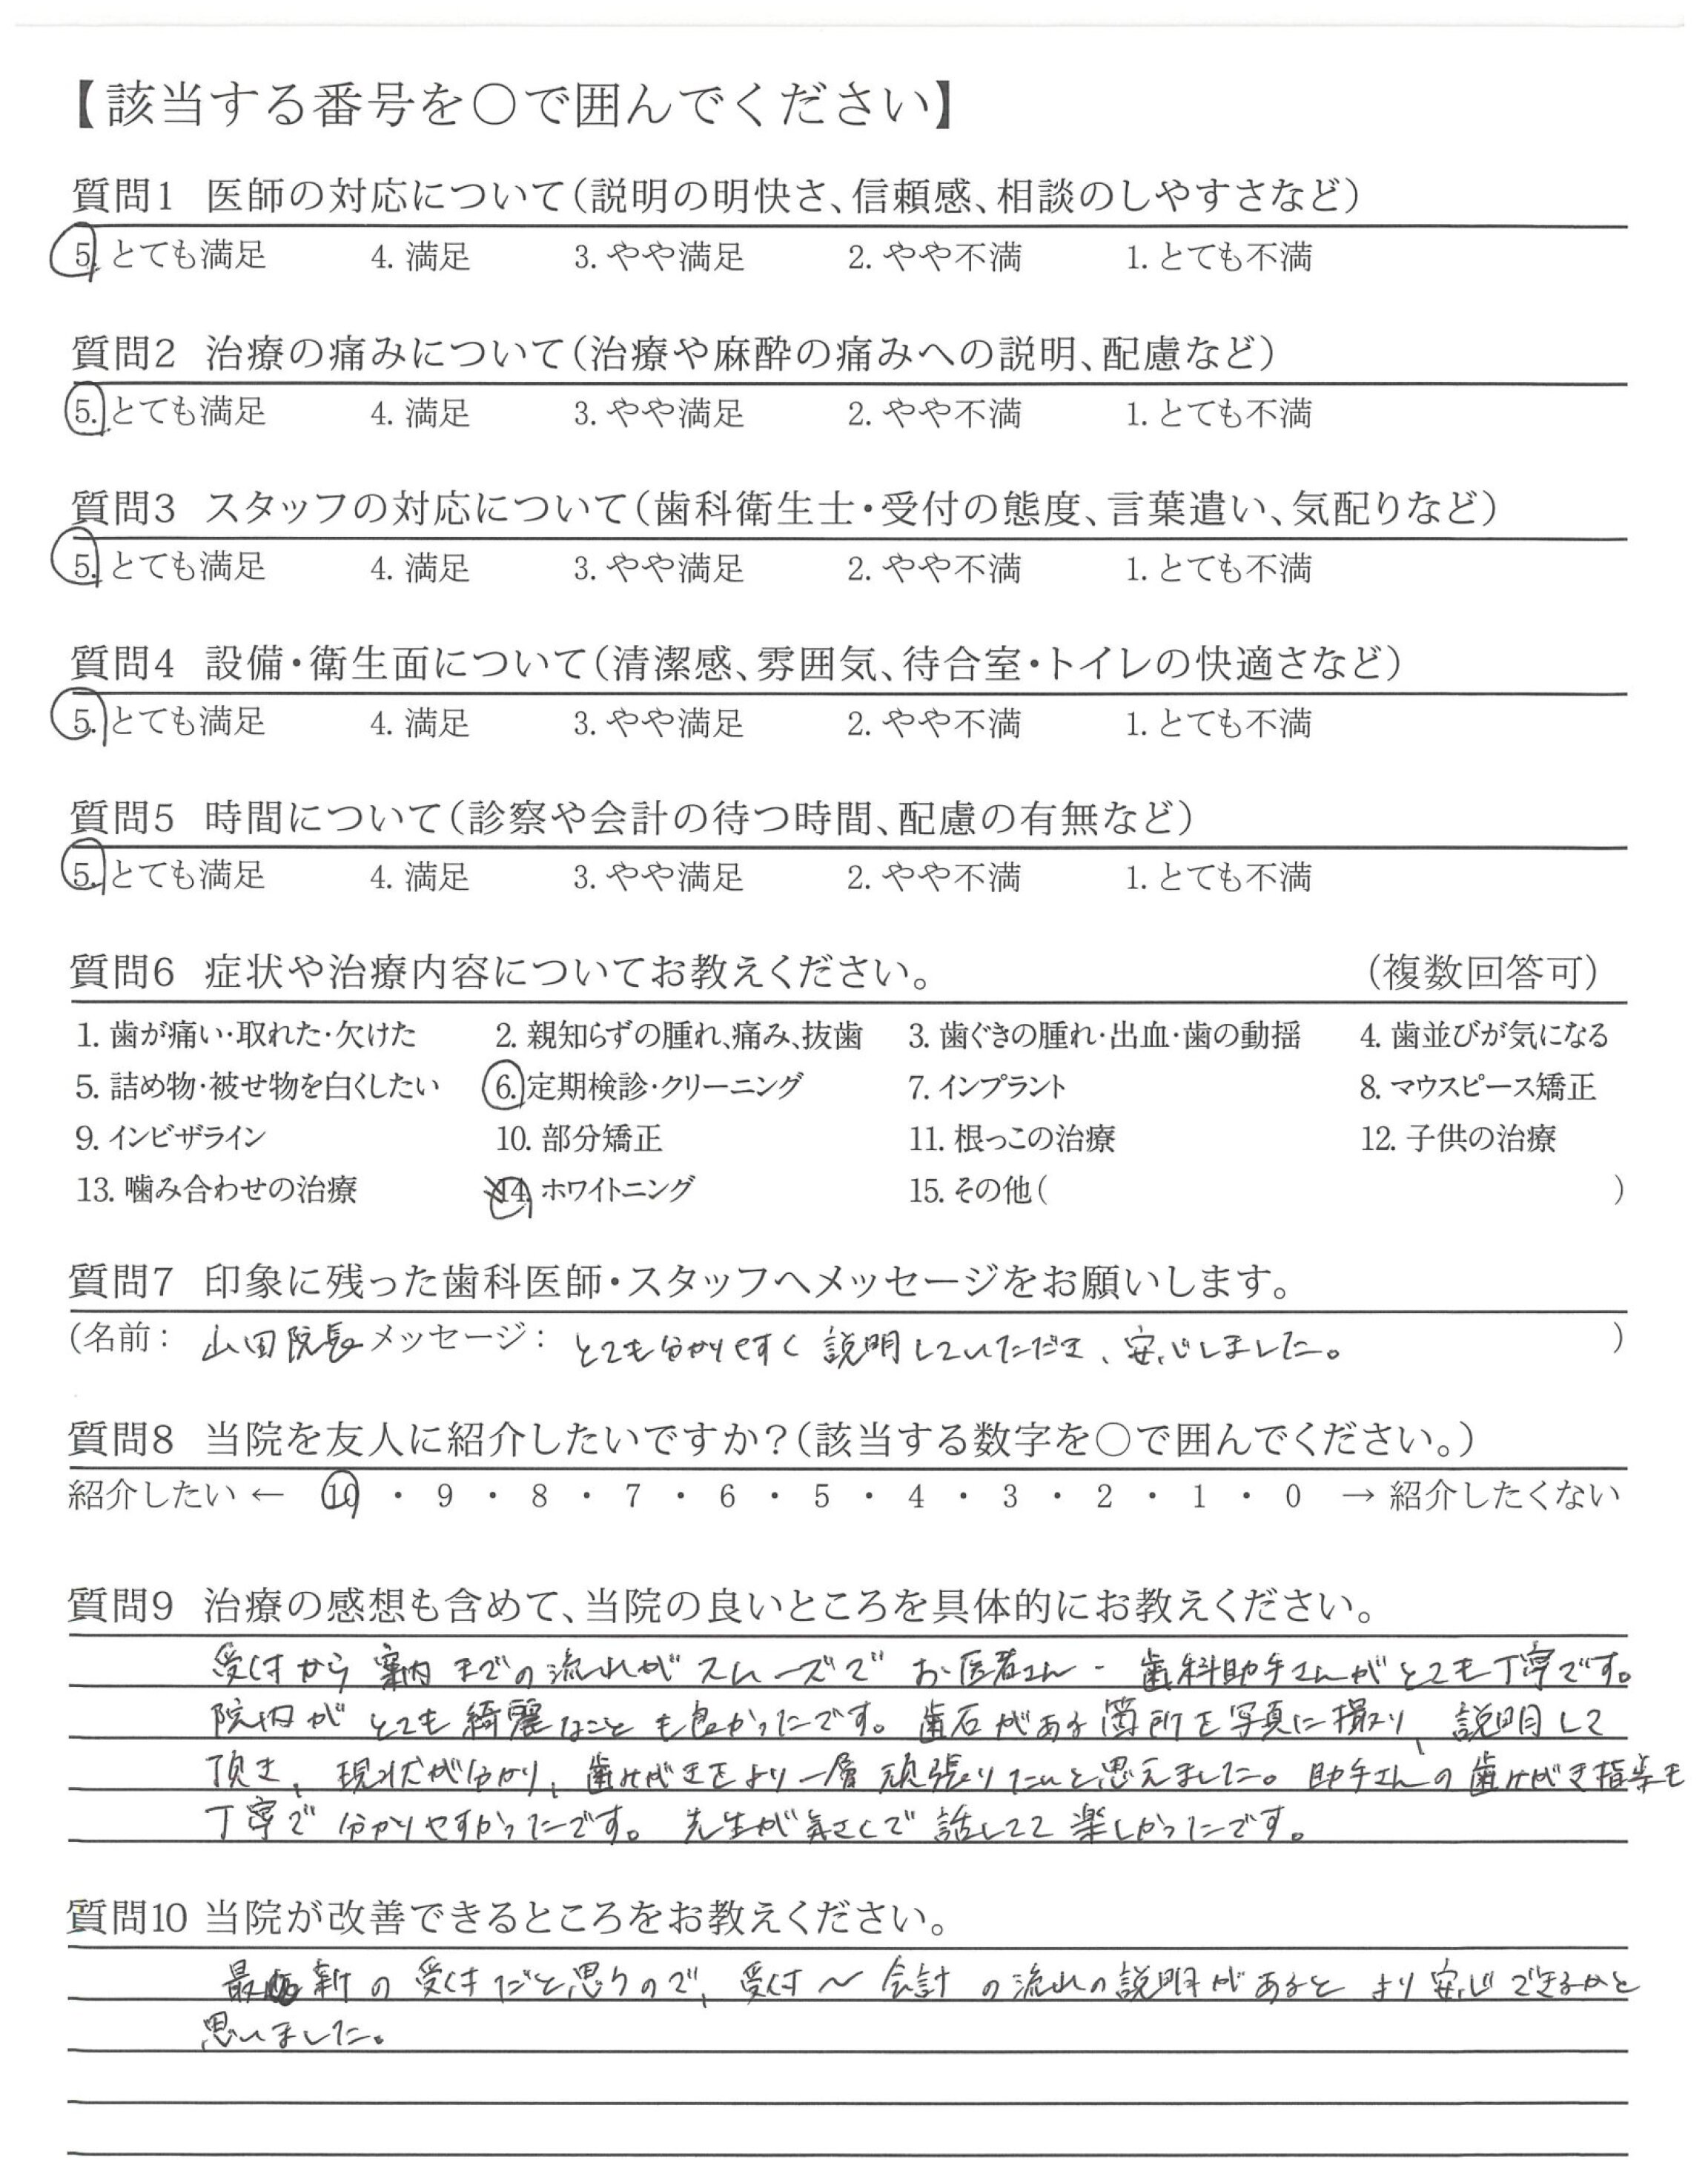 【該当する番号を〇で囲んでください】
質問1 医師の対応について(説明の明快さ、信頼感、相談のしやすさなど)
5. とても満足 4. 満足 3. やや満足 2. やや不満 1. とても不満
質問2 治療の痛みについて(治療や麻酔の痛みへの説明、配慮など)
5. とても満足 4. 満足 3. やや満足 2. やや不満 1. とても不満
質問3 スタッフの対応について(歯科衛生士・受付の態度、言葉遣い、気配りなど)
5. とても満足 4. 満足 3. やや満足 2. やや不満 1. とても不満
質問4 設備・衛生面について(清潔感、雰囲気、待合室・トイレの快適さなど)
5. とても満足 4. 満足 3. やや満足 2. やや不満 1. とても不満
質問5 時間について(診察や会計の待つ時間、配慮の有無など)
5. とても満足 4. 満足 3. やや満足 2. やや不満 1. とても不満
質問6 症状や治療内容についてお教えください。 (複数回答可)
1. 歯が痛い・取れた・欠けた 2. 親知らずの腫れ、痛み、抜歯 3. 歯ぐきの腫れ・出血・歯の動揺 4. 歯並びが気になる
5. 詰め物・被せ物を白くしたい 6. 定期検診・クリーニング 7. インプラント 8. マウスピース矯正
9. インビザライン 10. 部分矯正 11. 根っこの治療 12. 子供の治療
13. 噛み合わせの治療 14. ホワイトニング 15. その他( )
質問7 印象に残った歯科医師・スタッフへメッセージをお願いします。
(名前: 山田院長 メッセージ: とても分かりやすく説明していただき、安心しました。 )
質問8 当院を友人に紹介したいですか?(該当する数字を〇で囲んでください。)
紹介したい ← 10 ・ 9 ・ 8 ・ 7 ・ 6 ・ 5 ・ 4 ・ 3 ・ 2 ・ 1 ・ 0 → 紹介したくない
質問9 治療の感想も含めて、当院の良いところを具体的にお教えください。
受付から案内までの流れがスムーズでお医者さん・歯科助手さんがとても丁寧です。
院内がとても綺麗なことも良かったです。歯石がある箇所を写真に撮り、説明して
頂き、現状が分かり、歯みがきをより一層頑張りたいと思えました。助手さんの歯みがき指導も
丁寧で分かりやすかったです。先生が気さくで話してて楽しかったです。
質問10 当院が改善できるところをお教えください。
最新の受付だと思うので、受付〜会計の流れの説明があるとより安心できるかと
思いました。